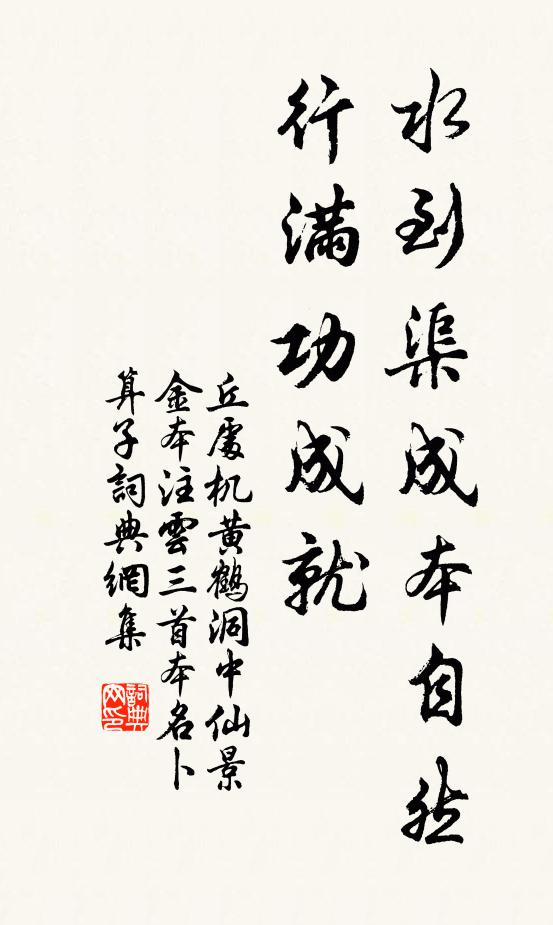 水到渠成本自然
行滿功成就
丘處机黄鶴洞中仙景
金本注雲三首本名卜
算子詞典網集
詞典网印